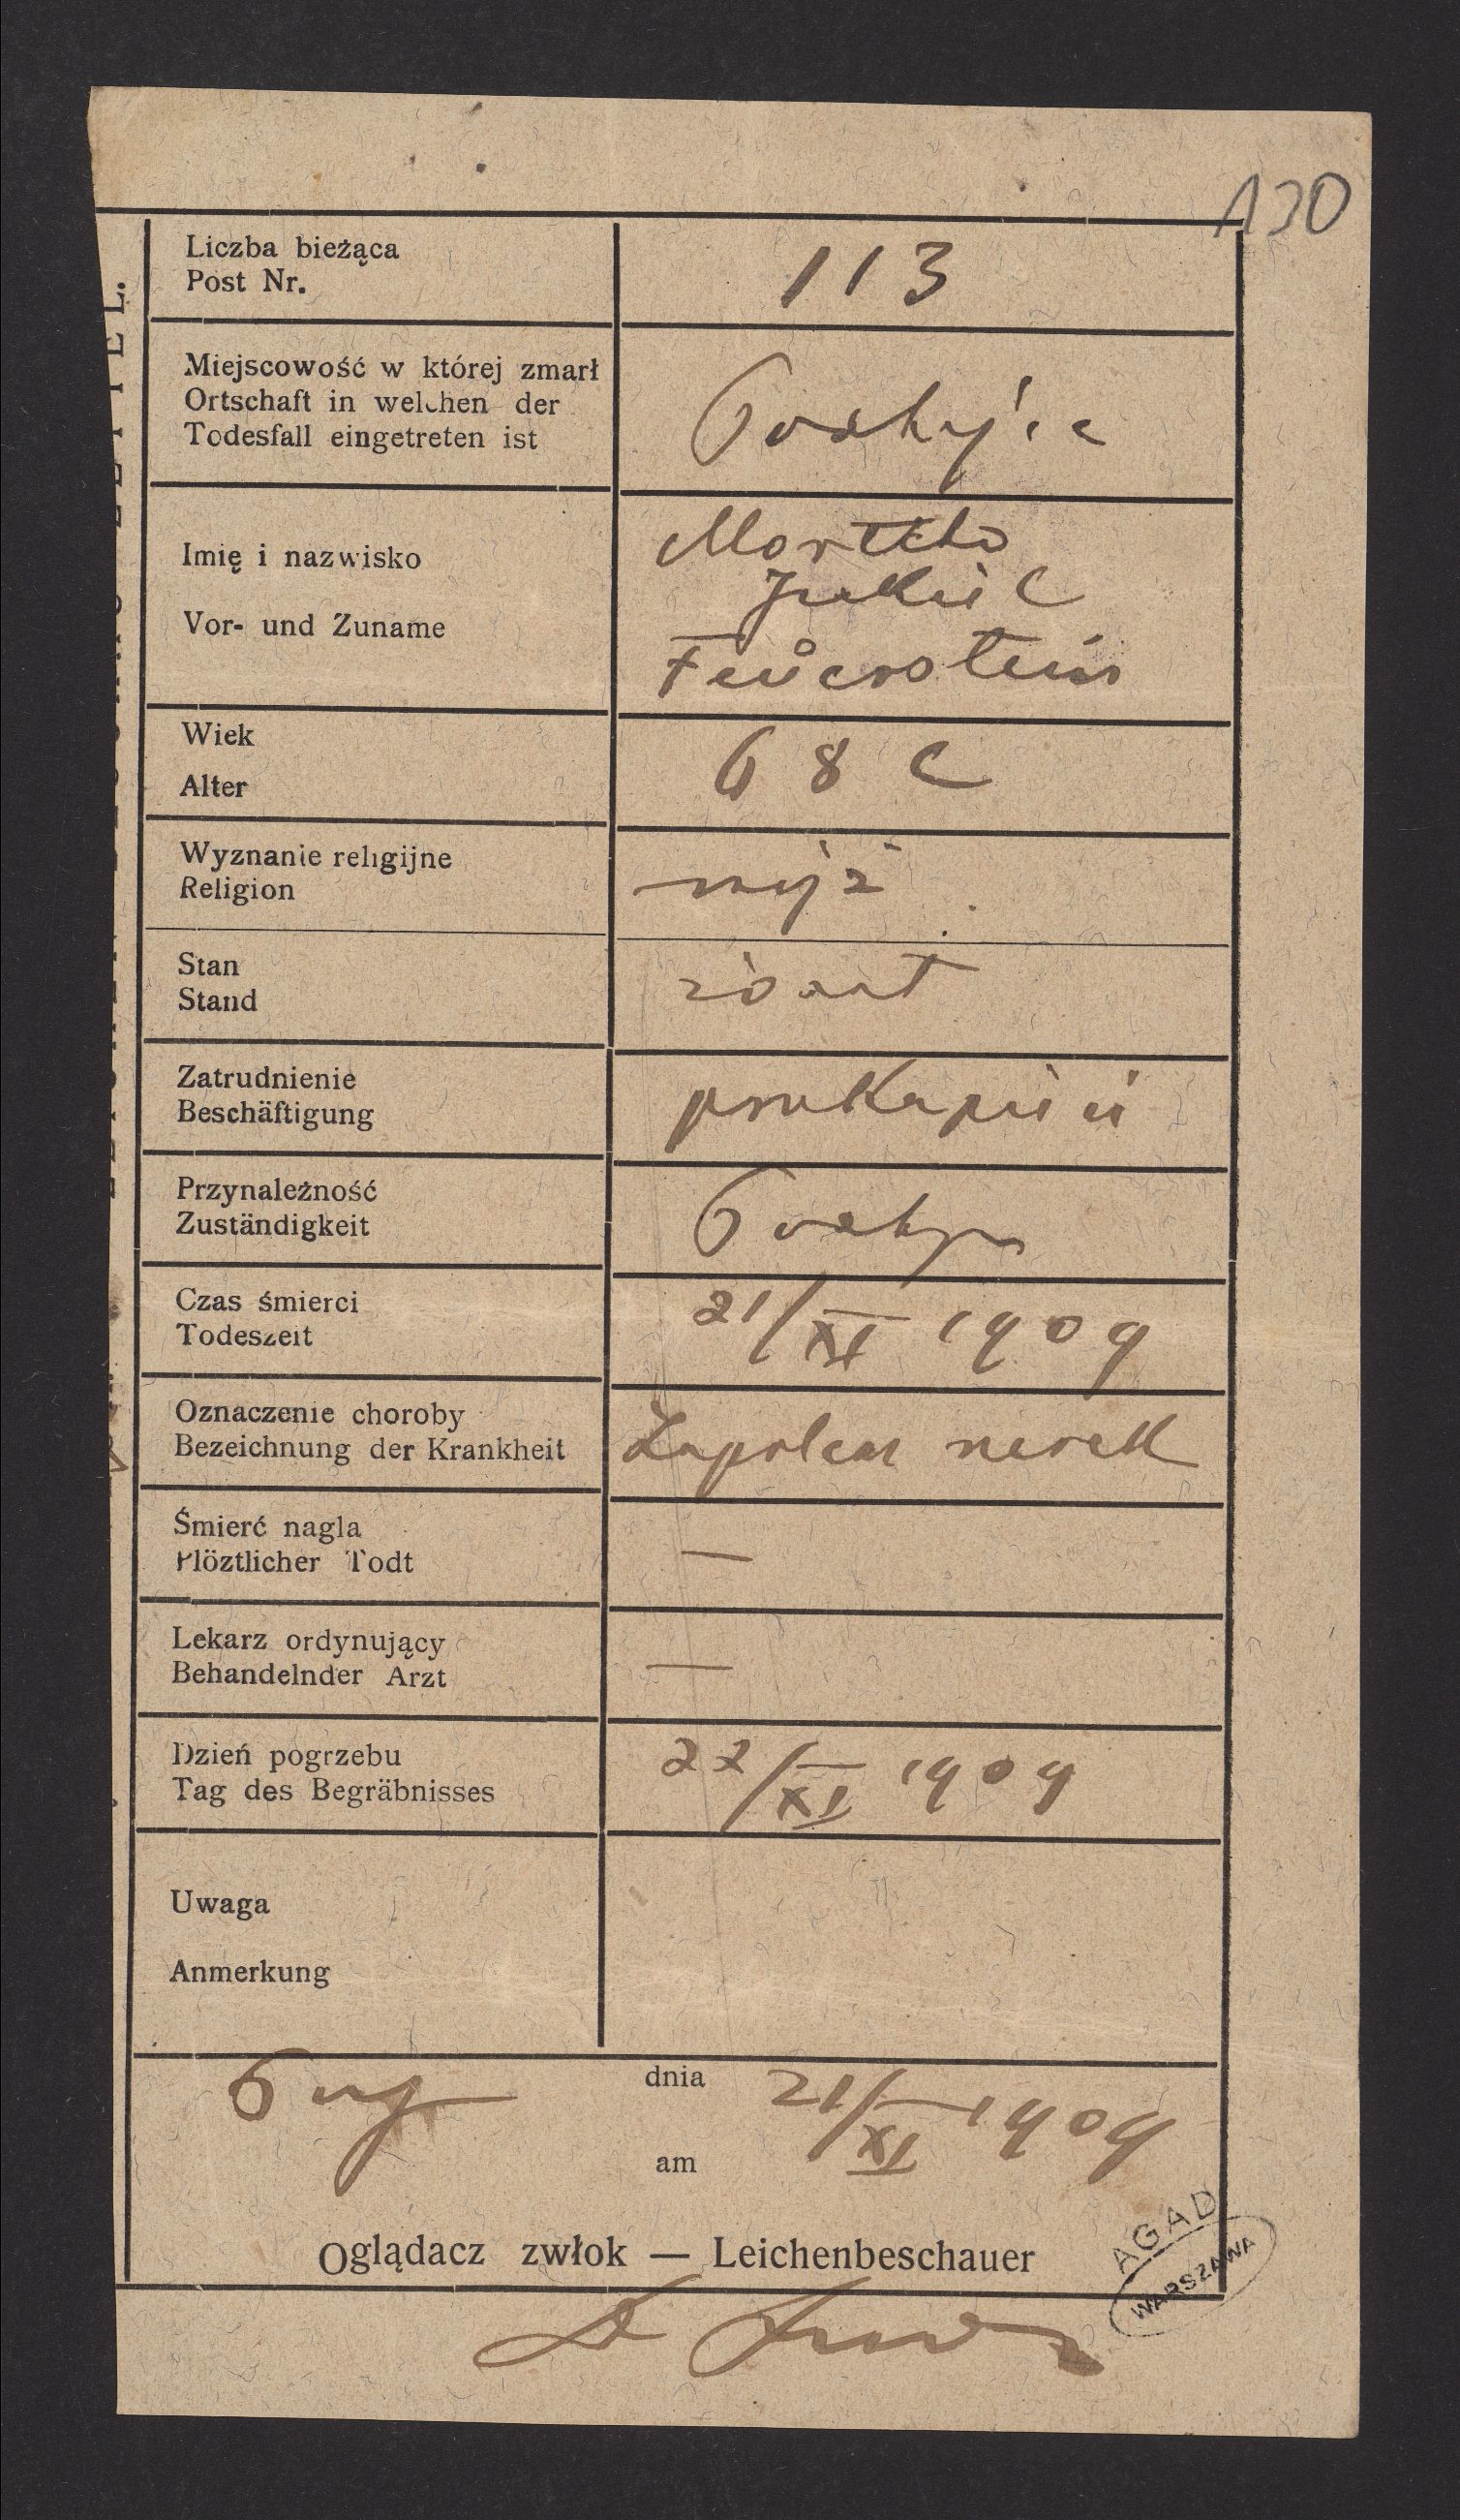 130
Liczba bieżąca
Post Nr.
113
Miejscowość w której zmarł
Ortschaft in welchen der
Todesfall eingetreten ist
Imię i nazwisko
Vor- und Zuname
Feuerstein
Wiek
Alter
68 l
Wyznanie religijne
Religion
mojż
Stan
Stand
Zatrudnienie
Beschäftigung
Przynależność
Zuständigkeit
Czas śmierci
Todeszeit
21/XI 1909
Oznaczenie choroby
Bezeichnung der Krankheit
Zapalenie nerek
Śmierć nagla
Plöztlicher Todt
—
Lekarz ordynujący
Behandelnder Arzt
—
Dzień pogrzebu
Tag des Begräbnisses
22/XI 1909
Uwaga
Anmerkung
dnia
am
21/XI 1909
Oglądacz zwłok — Leichenbeschauer
AGAD
WARSZAWA